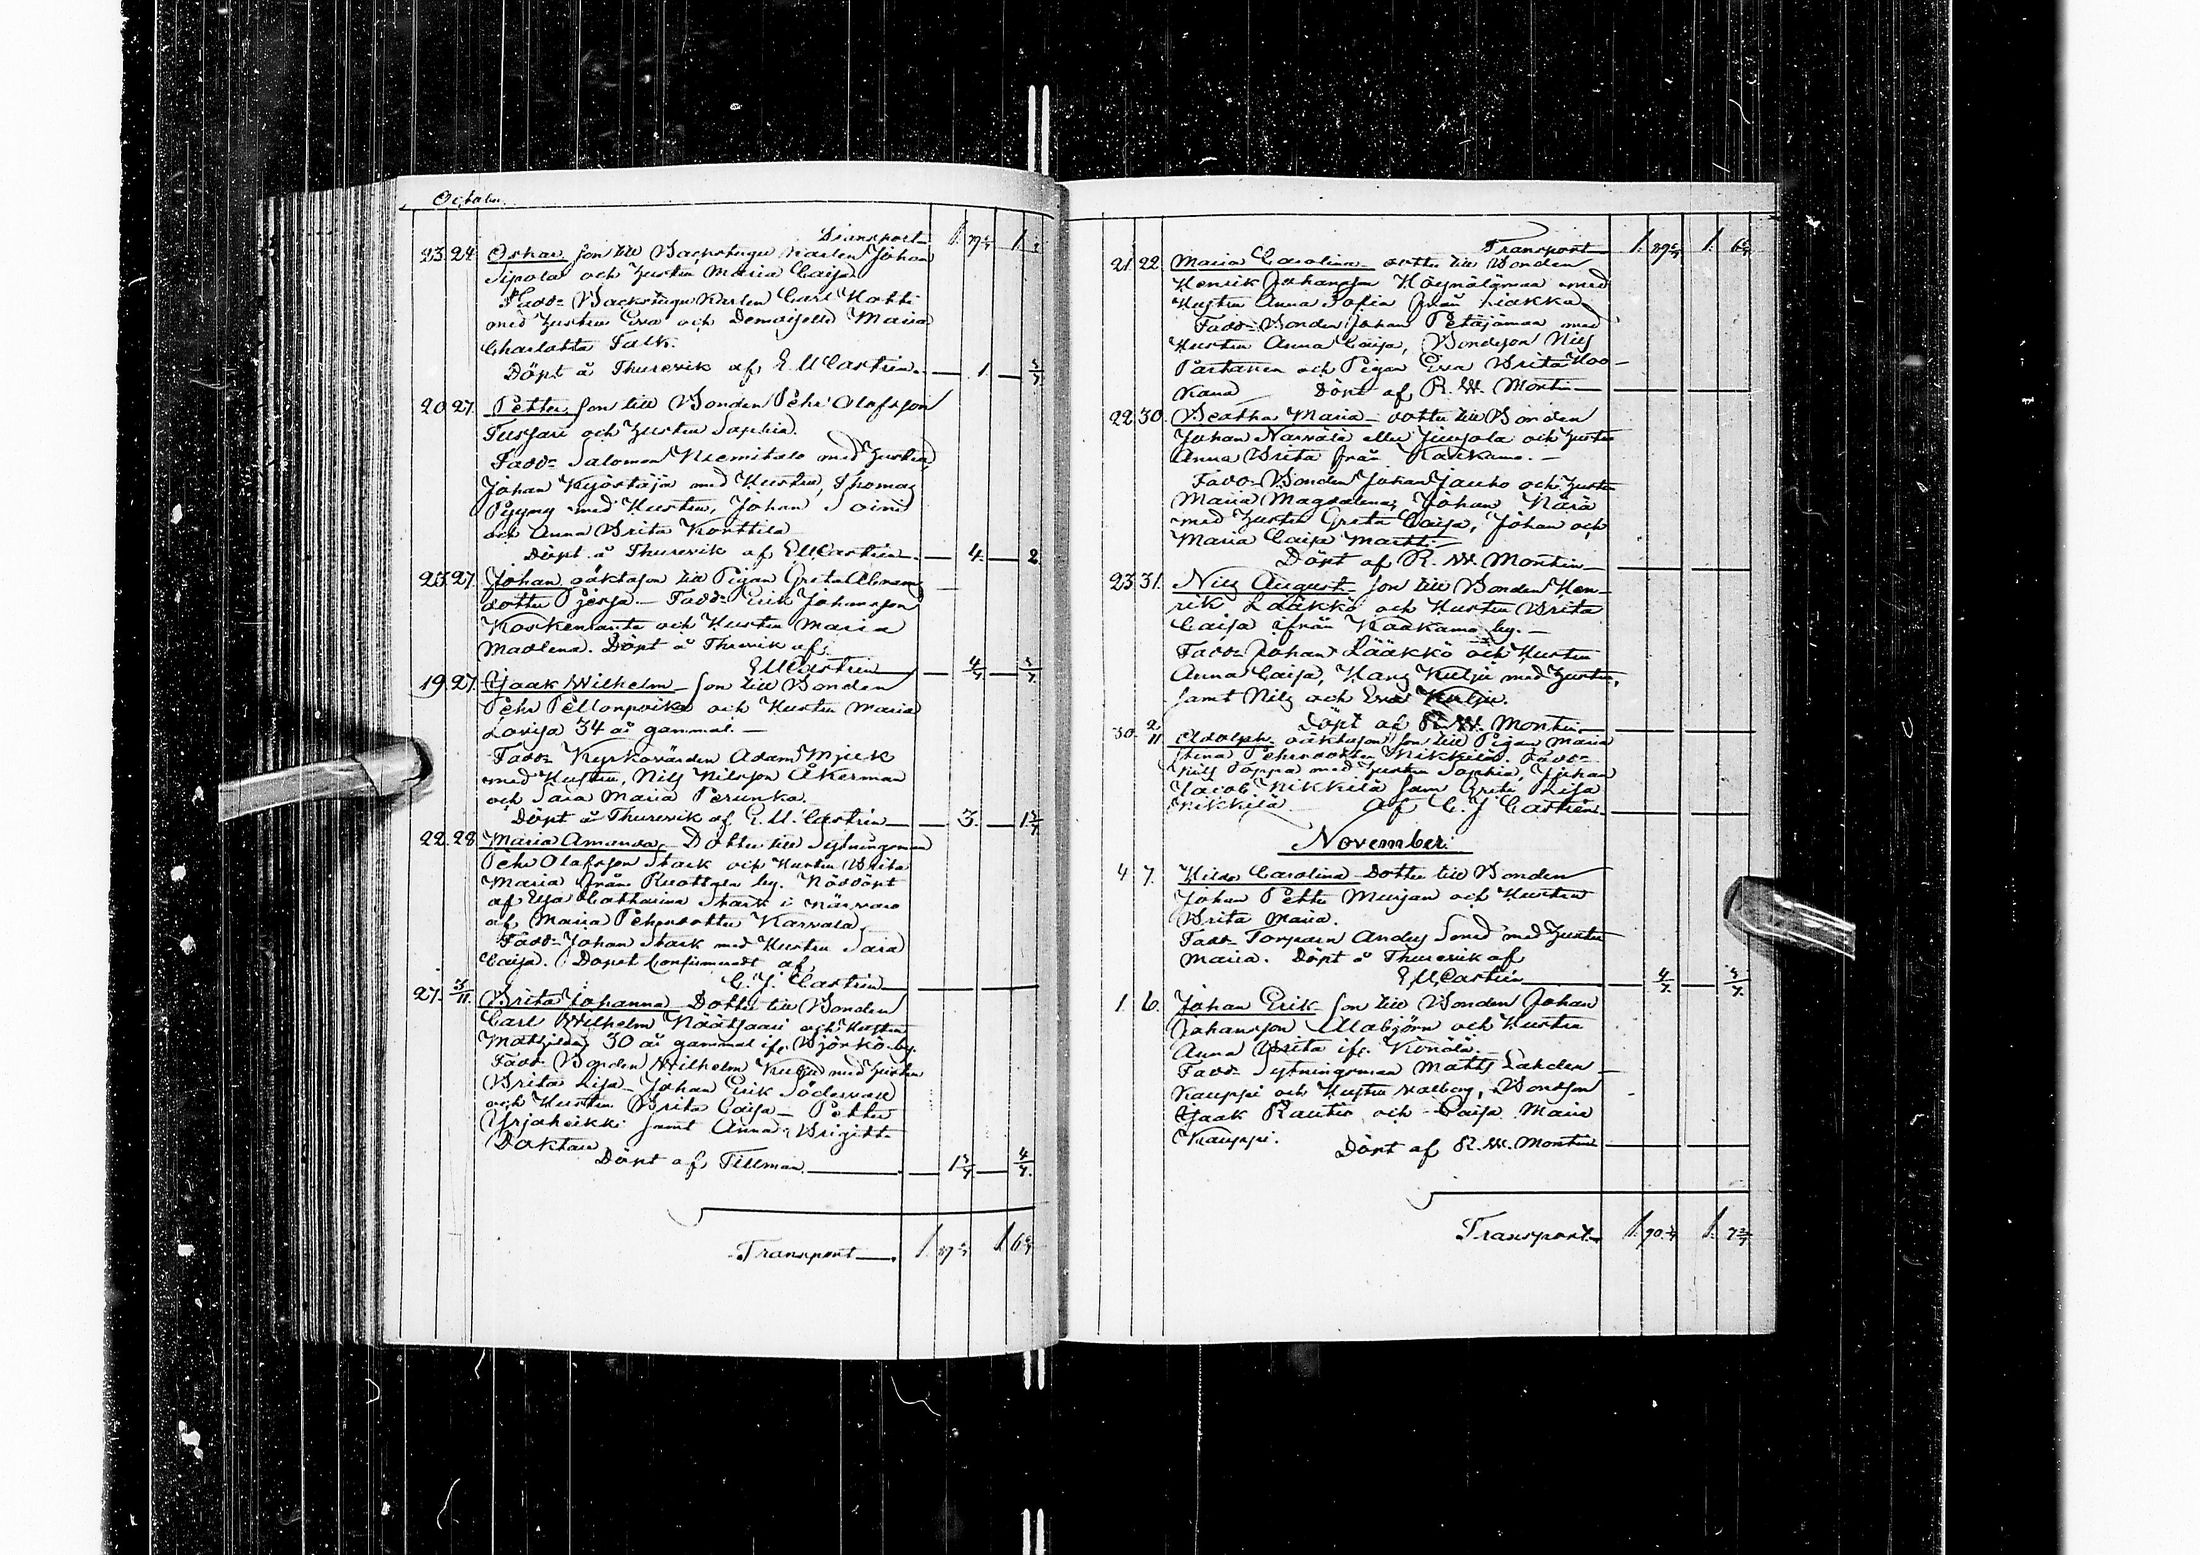 October.
Transport
23. 24. Oskar son till Backstugu Karlen Johan
Sipola och Hustru Maria Caisa
Fadd= Backstugu Karlen Carl Hotti
med Hustru Eva och Demoiselle Maria
Charlotta Falk.
Döpt å Thurevik af E M Castrén. 1 3/7
20 27. Petter son till Bonden Pehr Olofsson
och Hustru Sophia.
Fadd= Salomon Niemitalo med Hustru
Johan Kyöstäjä med Hustru, Thomas
med Hustru, Johan Soini
och Anna Brita Konttila
Döpt å Thurevik af E M Castrén. 4. 2
23. 27. Johan oäktason till Pigan Greta Abrams
dotter Fadd= Erik Johansson
Koskenranta och Hustru Maria
Madlena. Döpt å Threvik af
E M Castrén 4/7 3/7
19. 27. Isaak Wilhelm son till Bonden
Pehr och Hustru Maria
Lovisa 34 år gammal.
Fadd= Kyrkovärden Adam
med Hustru, Nils Nilsson Åkerman
och Sara Maria Perunka.
Döpt å Thurevik af E. M. Castrén 3. 1 3/7
22. 28 Maria Amanda Dotter till Sytningsman
Pehr Olofsson Stark och Hustru Brita
Maria från by. Nöddöpt
af Catharina Stark i närvaro
af Maria Pehrsdotter Karvala
Fadd= Johan Stark med Hustru Sara
Caisa. Dopet Confirmeradt af
C. J. Castrén
27. 3/11. Brita Johanna Dotter till Bonden
Carl Wilhelm Näätsaari och Hustru
Mathilda 30 år gammal ifr. Björkö by.
Fadd= Bonden Wilhelm med Hustru
Brita Lisa Johan Erik
och Hustru Brita Caisa Petter
Yrjäheikki samt Anna Brigitta
Döpt af Tillman. 1 3/7 4/7
Transport 1. 1. 6 6/7
Transport 1. 89 6/7 1. 6 6/7
21. 22. Maria Carolina dotter till Bonden
Henrik Johansson med
Hustru Anna Sofia från Liakka
Fadd= Bonden Johan Petäjämaa med
Hustru Anna Caisa, Bondeson Nils
Partanen och Pigan Eva Brita Koo-
kana Döpt af R. W. Montin
22. 30. Beatha Maria dotter till Bonden
Johan eller och Hustru
Anna Brita från Kaakamo.
Fadd= Bonden Johan Jauho och Hustru
Maria Magdalena, Johan Närä
med Hustru Greta Caisa, Johan och
Maria Caisa Martti
Döpt af R. W. Montin
23 31. Nils August son till Bonden Hen-
rik Lääkkö och Hustru Brita
Caisa ifrån Kaakamo by.
Fadd= Johan Lääkkö och Hustru
Anna Caisa, Hans Kulju med Hustru,
samt Nils och Eva Kulju.
Döpt af R. W. Montin
30. 2/11 Adolph oäktason son till Pigan Maria
Stina Pehrsdotter Nikkilä. Fadd=
Nils Poppa med Hustru Sophia, Johan
Jacob Nikkilä samt Greta Lisa
Nikkilä af C. J Castrén
November.
4 7. Hilda Carolina Dotter till Bonden
Johan Petter och Hustru
Brita Maria.
Fadd= Torparen Anders Smed med Hustru
Maria. Döpt å Thurevik af
E M Castrén 4/7. 3/7.
1. 6. Johan Erik son till Bonden Johan
Johansson Mabjörn och Hustru
Anna Brita ifr. Könölä
Fadd= Sytningsman Matts Lahden-
Kauppi och Hustru Valborg, Bondson
Isaak Rautio och Caisa Maria
Kauppi. Döpt af R. W. Montin
Transport 1. 90 1. 7 2/7